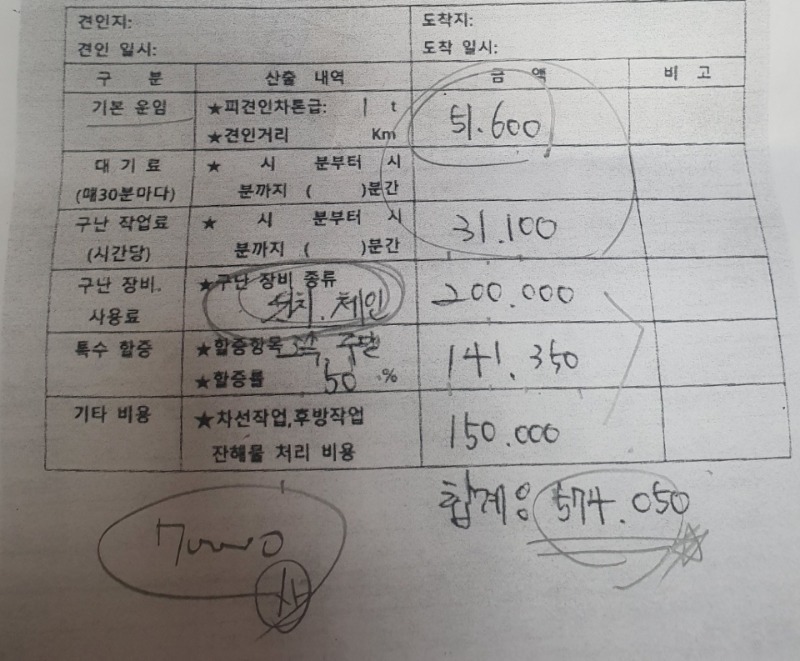 견인지: 도착지:
견인 일시: 도착 일시:
구 분 산출 내역 금 액 비 고
기본 운임 ★피견인차톤급: 1 t 51.600
★견인거리 Km
대 기 료 ★ 시 분부터 시
(매30분마다) 분까지 ( )분간
구난 작업료 ★ 시 분부터 시 31.100
(시간당) 분까지 ( )분간
구난 장비. ★구난 장비 종류 200.000
사용료 윈치. 체인
특수 할증 ★할증항목 주말 141.350
★할증률 50 %
기타 비용 ★차선작업,후방작업 150.000
잔해물 처리 비용
합계: 574.050